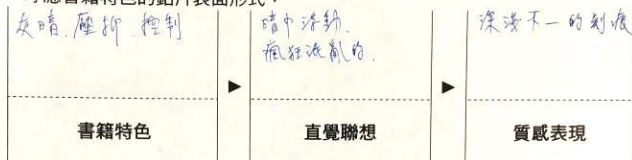 對應書籍特色的鉛片表面形式：
灰暗、壓抑、控制
暗中浮動、
瘋狂混亂的、
深淺不一的刻痕
書籍特色
直覺聯想
質感表現